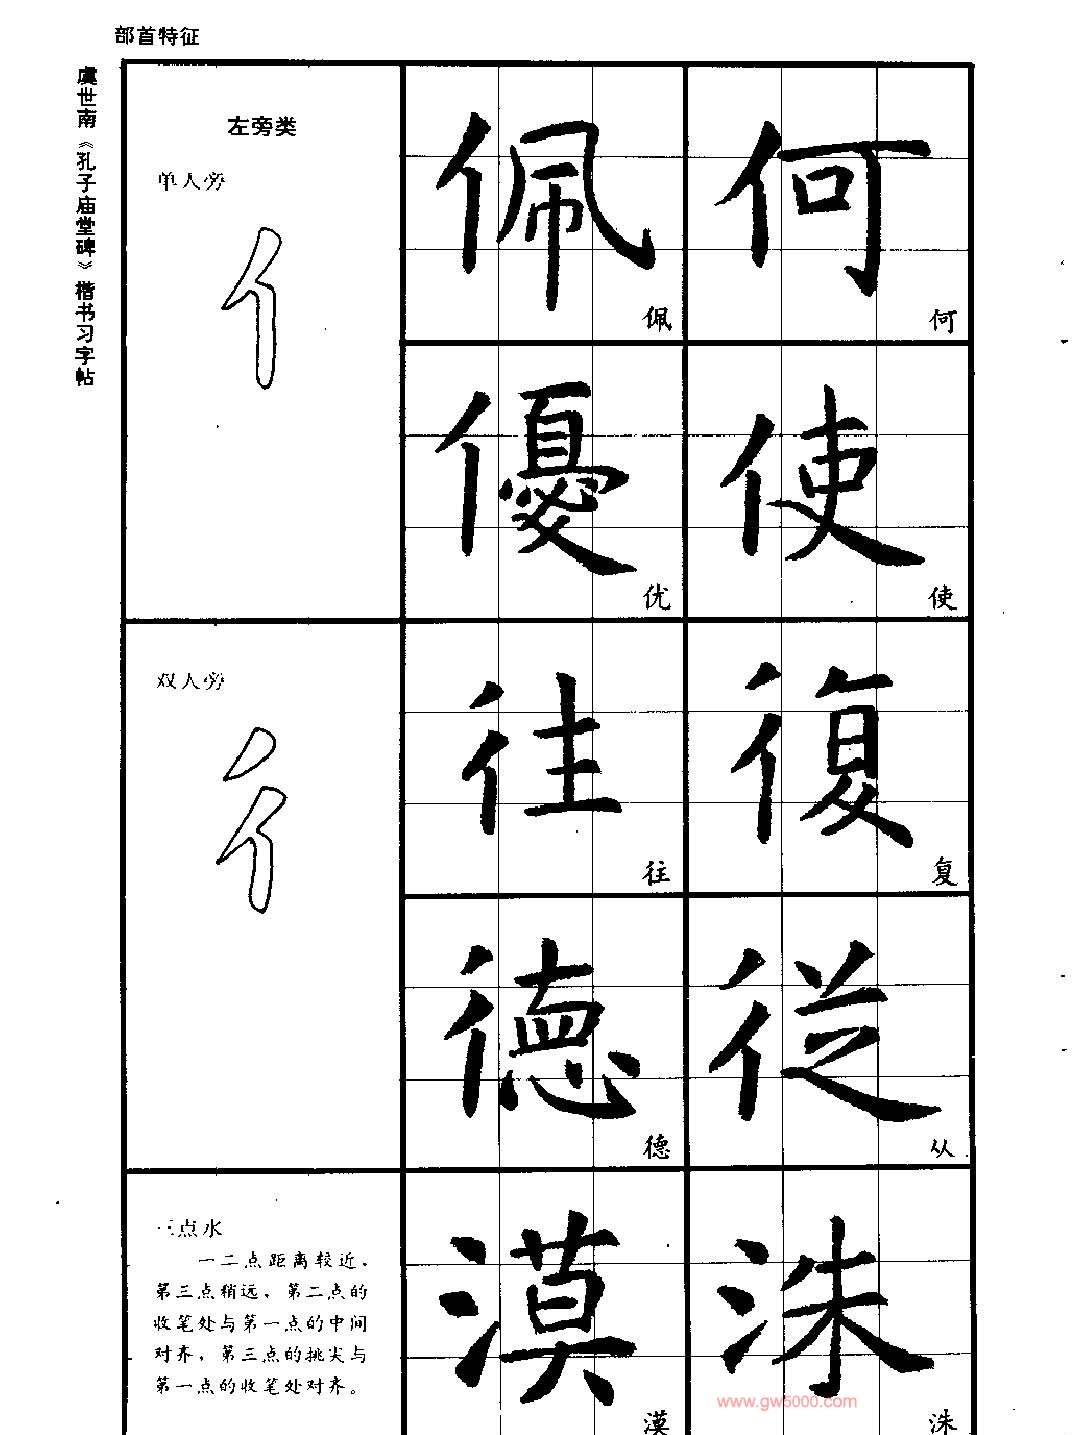 部首特征
虞世南《孔子庙堂碑》楷书习字帖
左旁类
单人旁
亻
佩 何
佩 何
優 使
优 使
双人旁
彳
往 復
往 复
德 從
德 从
三点水
一二点距离较近，
第三点稍远，第二点的
收笔处与第一点的中间
对齐，第三点的挑尖与
第一点的收笔处对齐。
漠 洙
漠 洙
www.gw5000.com